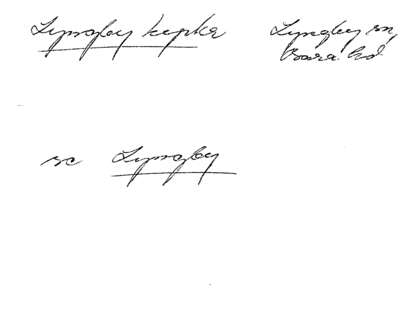 Lyngby kyrka
Lyngby sn,
Bara hd
se Lyngby